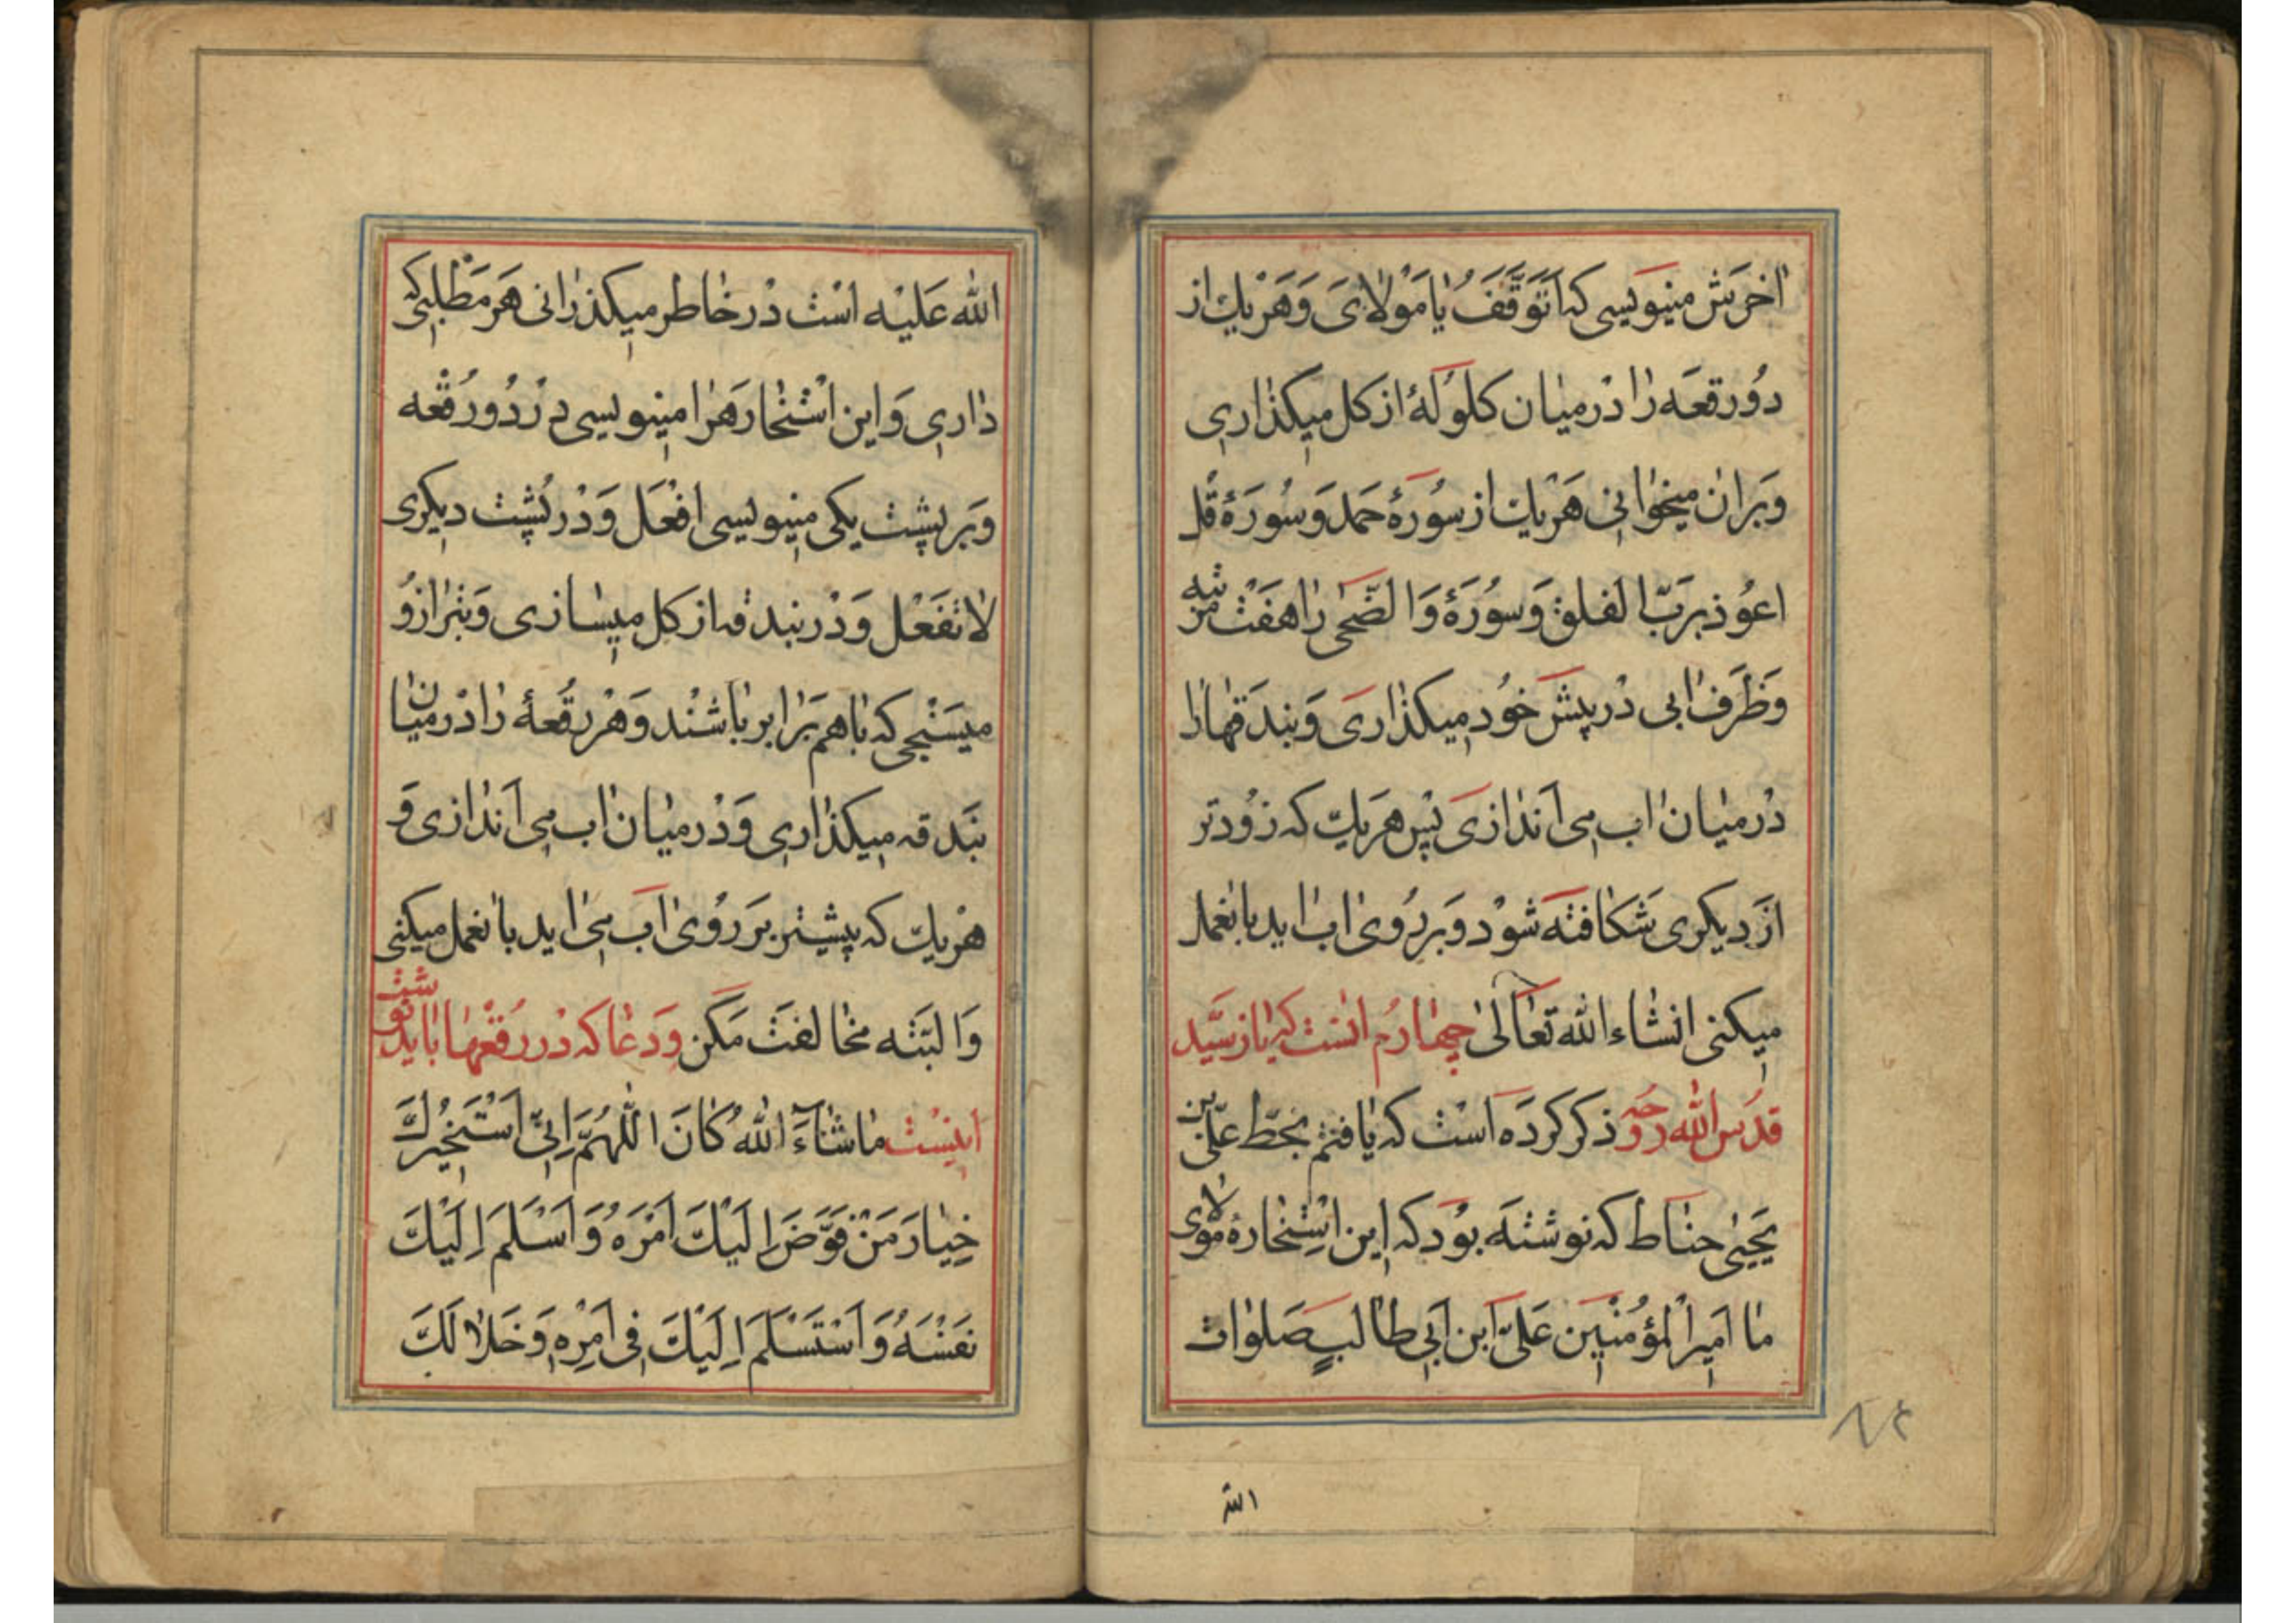 اخرش مینویسی که اتوقف یا مولای و هر یک از
دو رقعه را در میان کلولهٔ از کل میکذاری
و بران میخوانی هر یک از سورهٔ حمد و سورهٔ قل
اعوذ برب الفلق و سورهٔ و الضحی را هفت مرتبه
و ظرف ابی در پیش خود میکذاری و بندقها را
در میان اب می اندازی پس هر یک که زودتر
از دیکری شکافته شود و بر روی اب اید با نعمل
میکنی انشاء الله تعالی چهارم انست که باز سید
قدس الله روحه ذکر کرده است که یافتم بخط علی بن
یحیی حناط که نوشته بود که این استخارهٔ مولای
ما امیرالمؤمنین علی ابن ابی طالب صلوات
الله
۸۴
الله علیه است در خاطر میکذرانی هر مطلبی که
داری و این استخاره را مینویسی در دو رقعه
و بر پشت یکی مینویسی افعل و در پشت دیکری
لا تفعل و در بندقه از کل میسازی و بترازو
میسنجی که با هم برابر باشند و هر رقعهٔ را در میان
بندقه میکذاری و در میان اب می اندازی و
هر یک که پیشتر بر روی اب می اید بانعمل میکنی
و البته مخالفت مکن و دعا که در رقعها باید نوشت
اینست ما شاء الله کان اللهم انی استخیرك
خِیَارَ مَنْ فَوَّضَ اِلَیْكَ اَمْرَهُ وَ اَسْلَمَ اِلَیْكَ
نَفْسَهُ وَ اسْتَسْلَمَ اِلَیْكَ فِی اَمْرِهِ وَ خَلا لَكَ